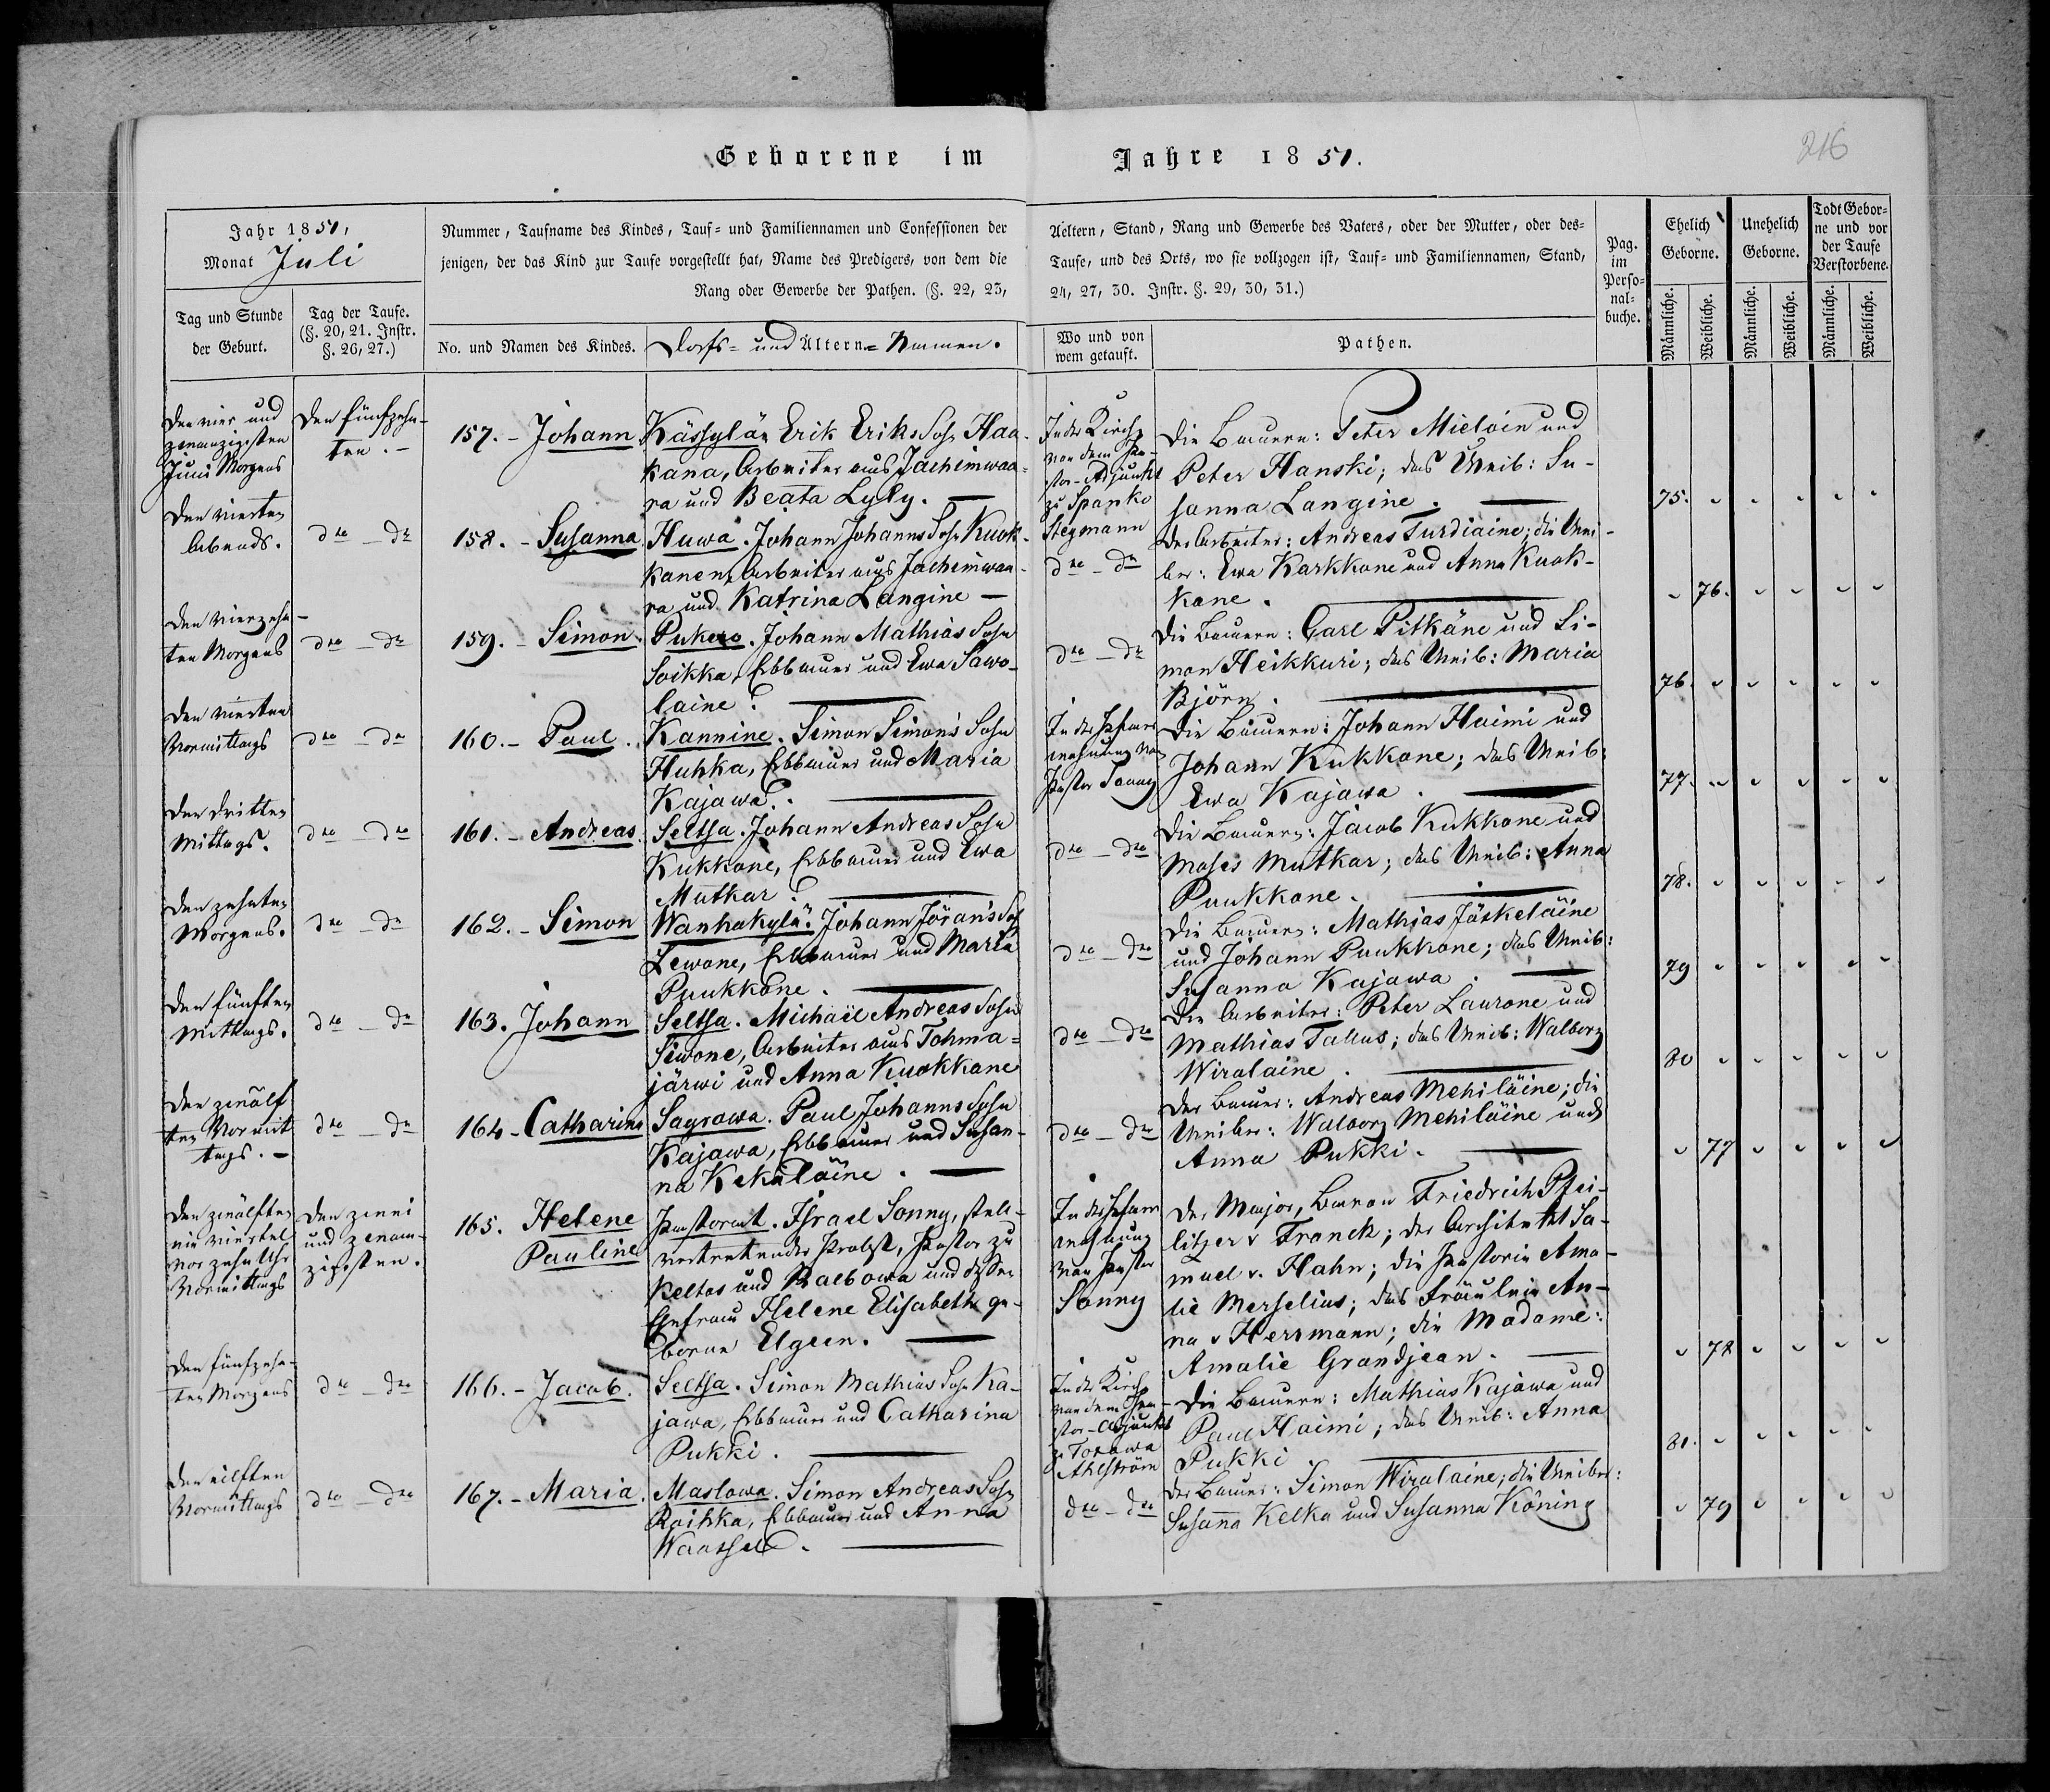 Geborene im Jahre 1851.
216
Jahr 1851,
Monat Juli
Tag und Stunde
der Geburt.
Tag der Taufe.
(§. 20, 21. Instr.
§. 26, 27.)
Nummer, Taufname des Kindes, Tauf- und Familiennamen und Confessionen der
jenigen, der das Kind zur Taufe vorgestellt hat, Name des Predigers, von dem die
Rang oder Gewerbe der Pathen. (§. 22, 23,
No. und Namen des Kindes.
Dorfs- und Ältern-Namen.
Aeltern, Stand, Rang und Gewerbe des Vaters, oder der Mutter, oder des-
Taufe, und des Orts, wo sie vollzogen ist, Tauf- und Familiennamen, Stand,
24, 27, 30. Instr. §. 29, 30, 31.)
Wo und von
wem getauft.
Pathen.
Pag.
im
Perso-
nal-
buche.
Ehelich
Geborne.
Unehelich
Geborne.
Todt Gebor-
ne und vor
der Taufe
Verstorbene.
Männliche.
Weibliche.
Männliche.
Weibliche.
Männliche.
Weibliche.
Den vier und
zwanzigsten
Juni Morgens
Den fünfzehn-
ten. -
157. - Johann
Kässylän Erik Eriks Sohn Haa-
kana, Arbeiter aus Jachimwaa-
ra und Beata Lyly. —
In der Kirche
von dem Pa-
stor-Adjunkt
zu Spanko
Stegmann
Die Bauern: Peter Mieloin und
Peter Hanski; das Weib: Su-
sanna Langine. —
75. " " " " "
Den vierten
Abends.
dto - dto
158. - Susanna.
Huwa. Johann Johanns Sohn Kuok-
kanen, Arbeiter aus Jachimwaa-
ra und Katrina Langine —
dto - dto
Der Arbeiter: Andreas Turdiaine; die Wei-
ber: Ewa Karkkone und Anna Kuok-
kane. —
" 76. " " " "
Den vierzehn-
ten Morgens
dto - dto
159. - Simon.
Pukero. Johann Mathias Sohn
Soikka, Erbbauer und Ewa Sawo-
laine. —
dto - dto
Die Bauern: Carl Pitkäne und Si-
mon Heikkuri; das Weib: Maria
Björn. —
76. " " " " "
Den vierten
Vormittags
dto - dto
160. - Paul.
Kannine. Simon Simons Sohn
Huhka, Erbbauer und Maria
Kajawa. —
In der Pfarr
wohnung von
Pastor Sonny
Die Bauern: Johann Haimi und
Johann Kukkone; das Weib:
Ewa Kajawa. —
77. " " " " "
Den dritten
Mittags.
dto - dto
161. - Andreas.
Seltsa. Johann Andreas Sohn
Kukkone, Erbbauer und Ewa
Mutkar. —
dto - dto
Die Bauern: Jacob Kukkone und
Moses Mutkar; das Weib: Anna
Puukkone. —
78. " " " " "
Den zehnten
Morgens.
dto - dto
162. - Simon
Wanhakylä. Johann Jörans Sohn
Lewone, Erbbauer und Maria
Puukkone. —
dto - dto
Die Bauern: Mathias Jäskeläine
und Johann Puukkone; das Weib:
Susanna Kajawa. —
79 " " " " "
Den fünften
Mittags.
dto - dto
163. Johann
Seltsa. Michael Andreas Sohn
Siwone, Arbeiter aus Tohma-
järwi und Anna Kuokkane
dto - dto
Die Arbeiter: Peter Laurone und
Mathias Tallus; das Weib: Walborg
Wiralaine. —
80 " " " " "
Den zwölf
ten Vormit
tags. -
dto - dto
164 - Catharina
Sagrowa. Paul Johanns Sohn
Kajawa, Erbbauer und Susan-
na Kekäläine. —
dto - dto
Der Bauer: Andreas Mehiläine; die
Weiber: Walborg Mehiläine und
Anna Pukki. —
" 77 " " " "
Den zwölften
ein viertel
vor zehn Uhr
Vormittags
Den zwei
und zwan-
zigsten.
165. Helene
Pauline
Pastorat. Israel Sonny, stell-
vertretender Probst, Pastor zu
Keltos und Rääbowa und dessen
Ehefrau Helene Elisabeth ge-
borne Elgeen. —
In der Pfarr
wohnung
von Pastor
Sonny
Der Major, Baron Friedrich Pfei-
litzer v Franck; der Architekt Sa-
muel v. Hahn; die Pastorin Ama-
lie Merselius; das Fräulein An-
na v Herrmann; die Madame:
Amalie Grandjean. —
" 78 " " " "
Den fünfzehn-
ten Morgens
dto - dto
166. - Jacob.
Seltsa. Simon Mathias Sohn Ka-
jawa, Erbbauer und Catharina
Pukki. —
In der Kirche
von dem Pa-
stor-Adjunkt
zu Toxowa
Ahlström
Die Bauern: Mathias Kajawa und
Paul Haimi; das Weib: Anna
Pukki —
81. " " " " "
Den eilften
Vormittags
dto - dto
167. - Maria.
Maslowa. Simon Andreas Sohn
Roihka, Erbbauer und Anna
Waatsel. —
dto - dto
Der Bauer: Simon Wiralaine; die Weiber:
Susanna Kelka und Susanna Köning
" 79 " " " "